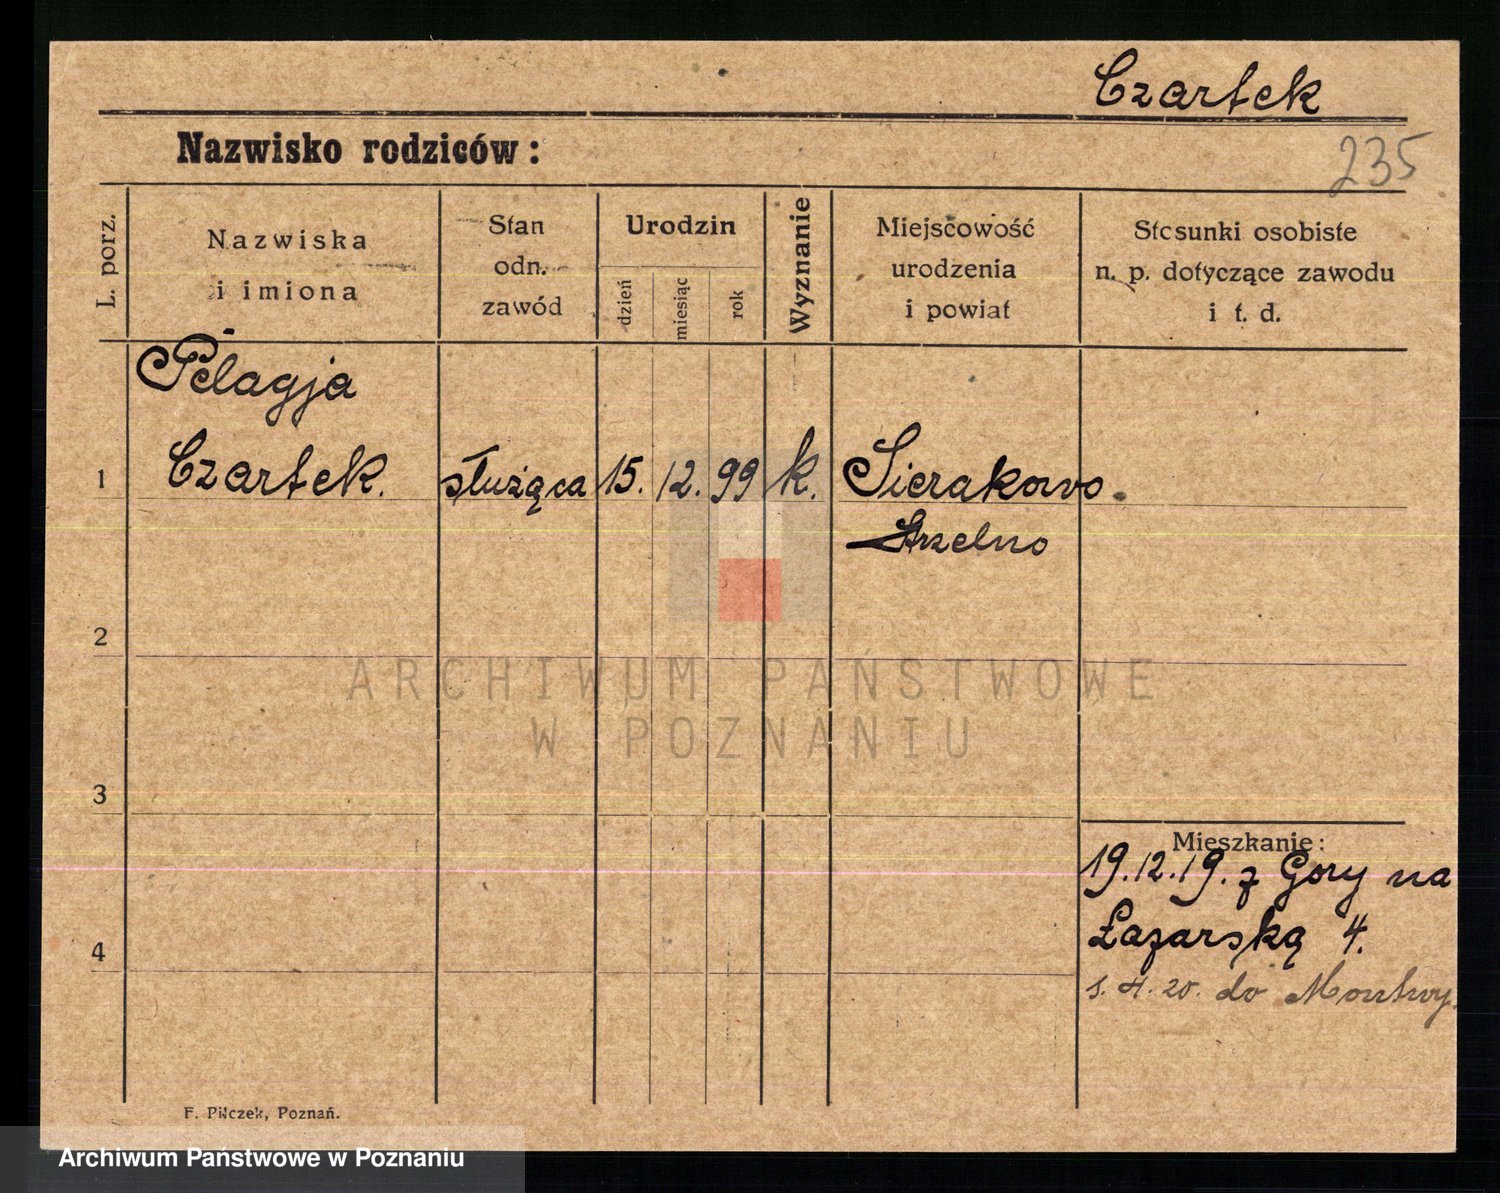 Czartek
Nazwisko rodziców:
235
L. porz.
Nazwiska
i imiona
Stan
odn.
zawód
Urodzin
dzień
miesiąc
rok
Wyznanie
Miejscowość
urodzenia
i powiat
Stosunki osobiste
n. p. dotyczące zawodu
i t. d.
Pelagja
1 Czartek. służąca 15. 12. 99 k. Sierakowo.
Strzelno
2
3
4
Mieszkanie:
19.12.19. z Gory na
Łazarską 4.
20. do Montwy.
F. Pilczek, Poznań.
ARCHIWUM PAŃSTWOWE
W POZNANIU
Archiwum Państwowe w Poznaniu